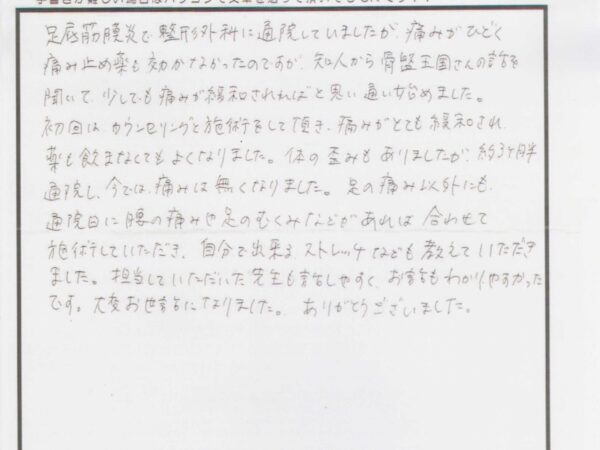 足底筋膜炎で整形外科に通院していましたが、痛みがひどく
痛み止め薬も効かなかったのですが、知人から骨盤王国さんの話を
聞いて、少しでも痛みが緩和されればと思い通い始めました。
初回は、カウンセリングと施術をして頂き、痛みがとても緩和され、
薬も飲まなくてもよくなりました。体の歪みもありましたが、約3ヶ月半
通院し、今では、痛みは無くなりました。足の痛み以外にも、
通院日に腰の痛みや足のむくみなどがあれば合わせて
施術していただき、自分で出来るストレッチなども教えていただき
ました。担当していただいた先生も話しやすく、お話もわかりやすかった
です。大変お世話になりました。ありがとうございました。